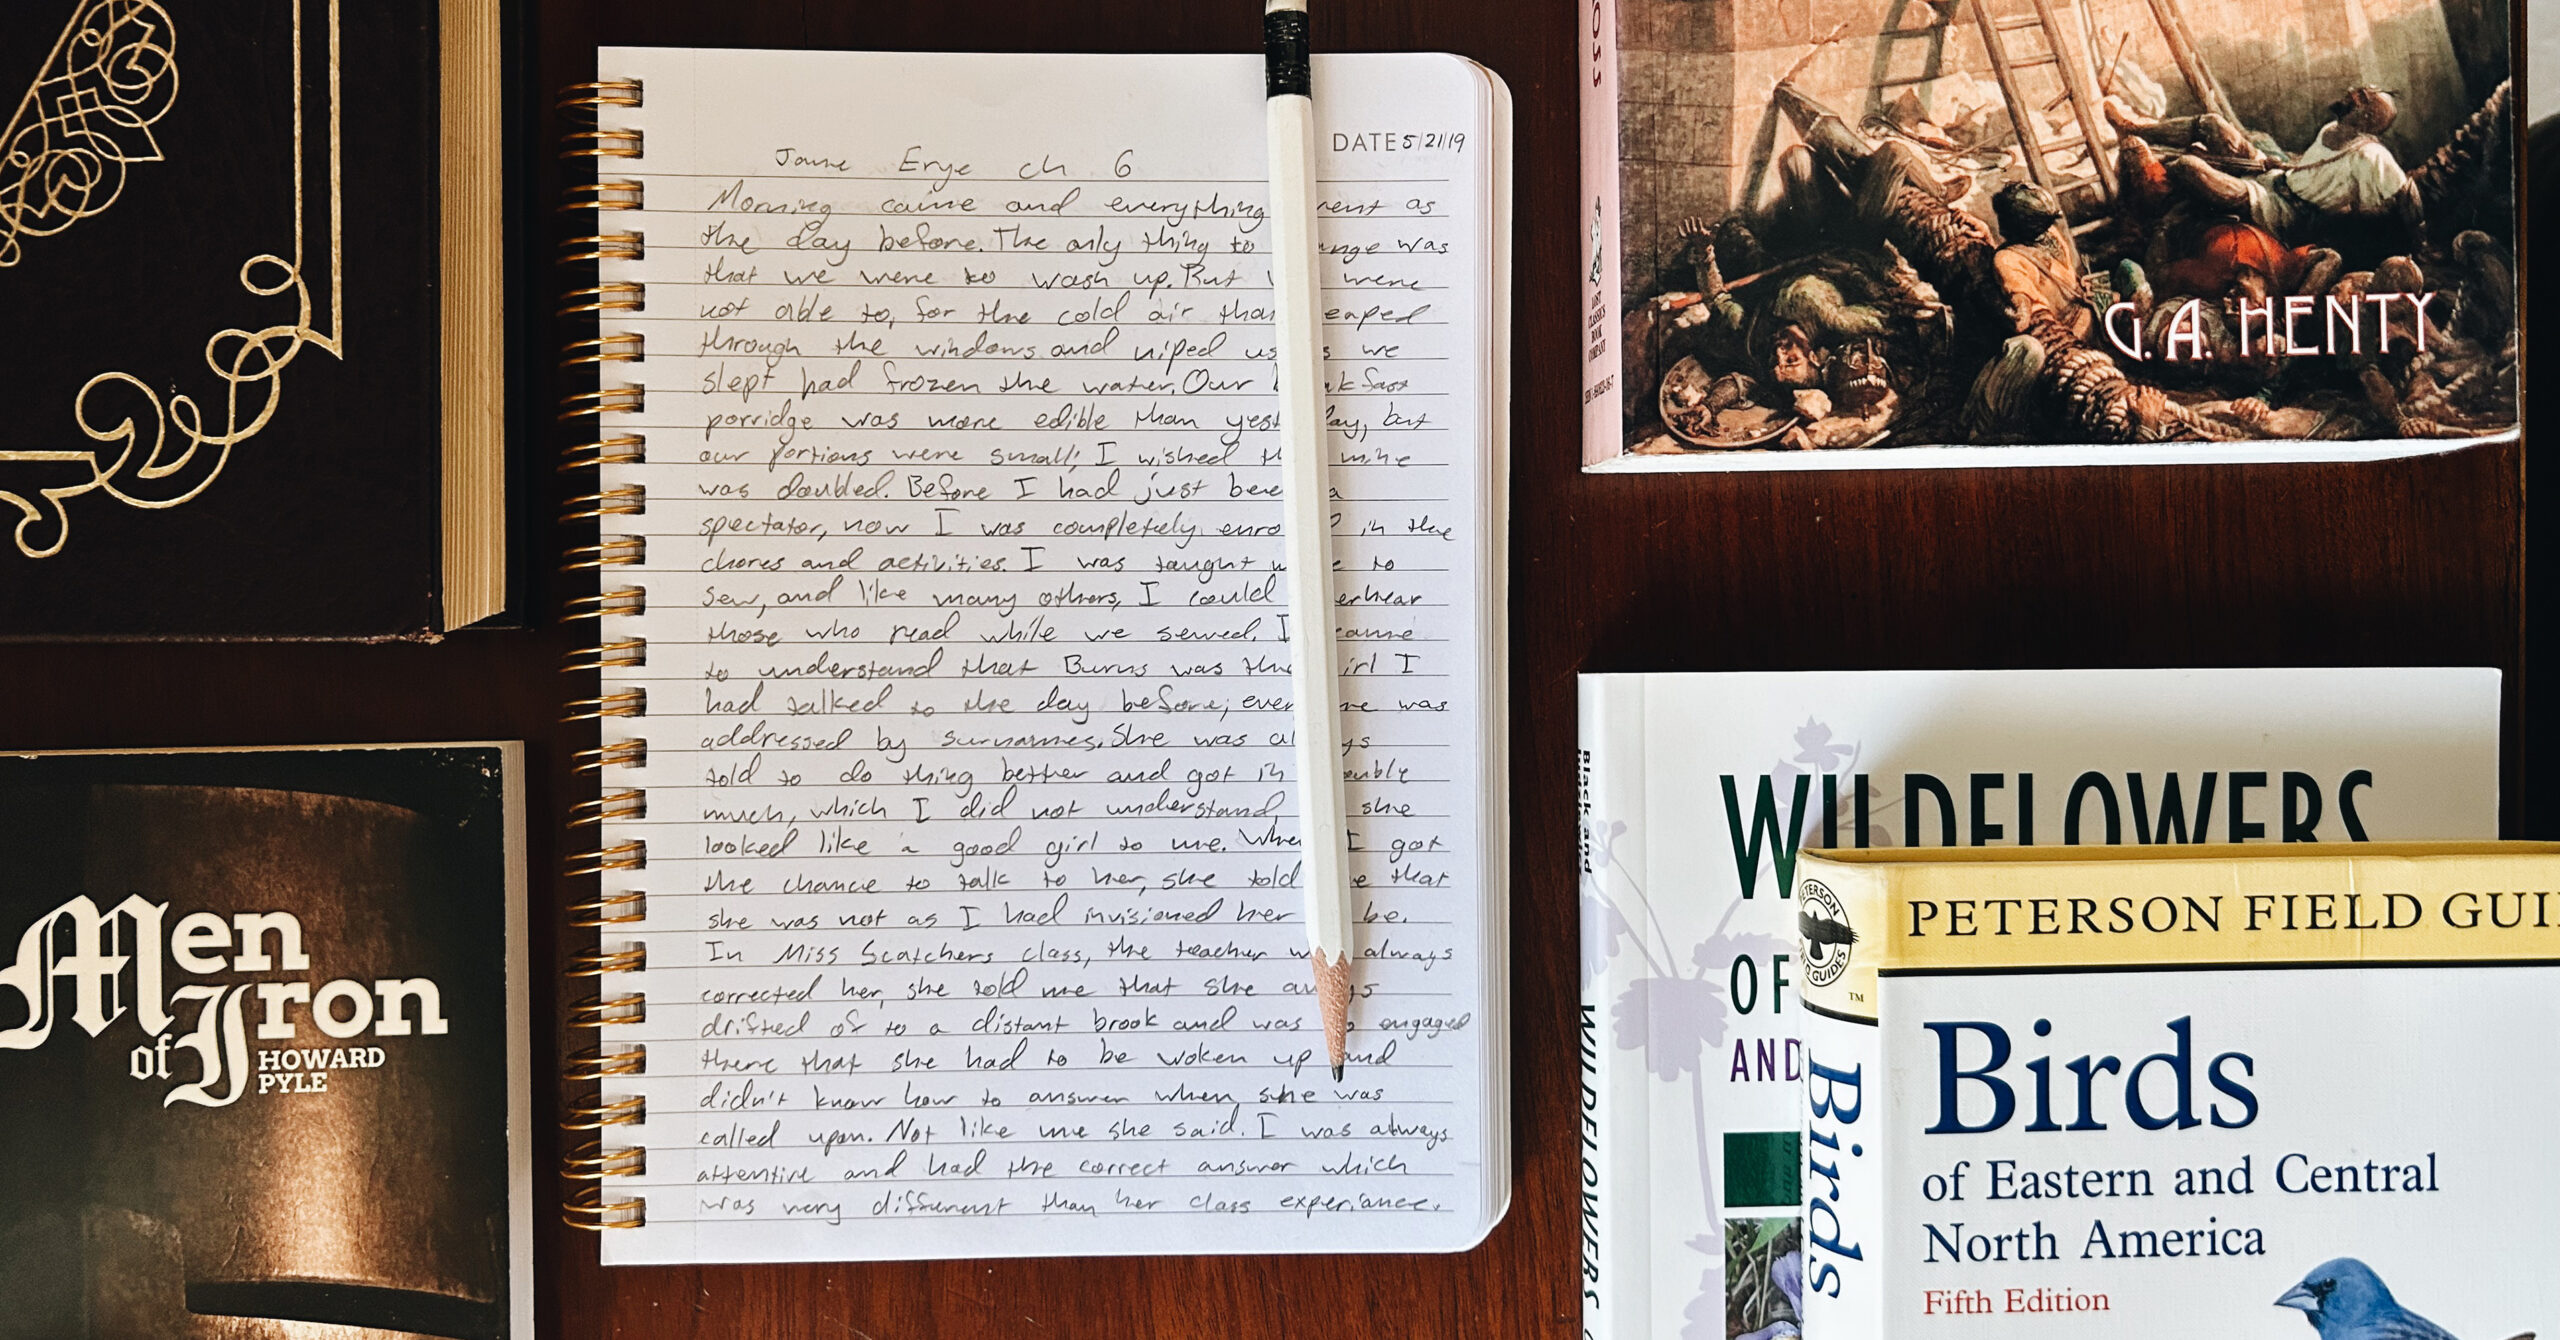 Men
of Iron
HOWARD
PYLE
DATE 5/21/19
Jane Erye ch 6
Morning came and everything went as
the day before. The only thing to change was
that we were to wash up. But were
not able to, for the cold air that
through the windows and niped us as we
slept had frozen the water. Our breakfast
porridge was more edible than yesterday, but
our portions were small; I wished that mine
was doubled. Before I had just been a
spectator, now I was completely in the
chores and activities. I was taught to
sew, and like many others, I could overhear
those who read while we sewed. I came
to understand that Burns was the girl I
had talked to the day before; everyone was
addressed by surnames. She was always
told to do thing better and got in trouble
much, which I did not understand, she
looked like a good girl to me. When I got
the chance to talk to her, she told me that
she was not as I had invisioned her be.
In Miss Scatchers class, the teacher always
corrected her, she told me that she always
drifted of to a distant brook and was so engaged
there that she had to be woken up and
didn't know how to answer when she was
called upon. Not like me she said. I was always
attentive and had the correct answer which
was very different than her class experiance.
G. A. HENTY
LOST
CLASSICS
BOOK
COMPANY
WILDFLOWERS
OF
AND
Black and
WILDFLOWERS
PETERSON FIELD
PETERSON
FIELD GUIDES
TM
Birds
Birds
of Eastern and Central
North America
Fifth Edition